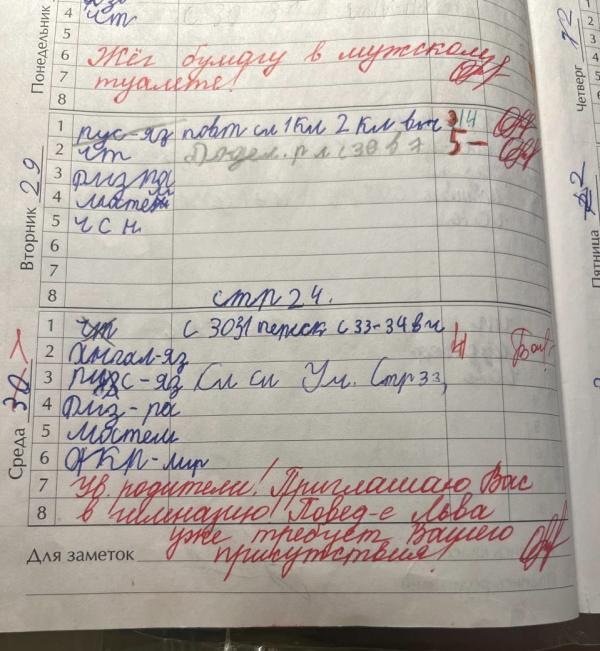 Понедельник
4 чт
5
6 Жёг бумагу в мужском
7 туалете!
8
Вторник 29
1 рус-яз повт сл 1кл 2 кл вт 3/4
2 чт 5-
3 физ ра
4 матем
5 ч с н
6
7
8 стр 24.
Среда 30
1 чт с 3031 переск с 33-34 вч 4
2 Англ-яз
3 рус-яз Сл сл Уч. Стр 33,
4 физ-ра
5 матем
6 окр-мир
7 Ув. родители! Приглашаю Вас
8 в гимназию! Повед-е Льва
уже требует Вашего
Для заметок присутствия!
Четверг
Пятница